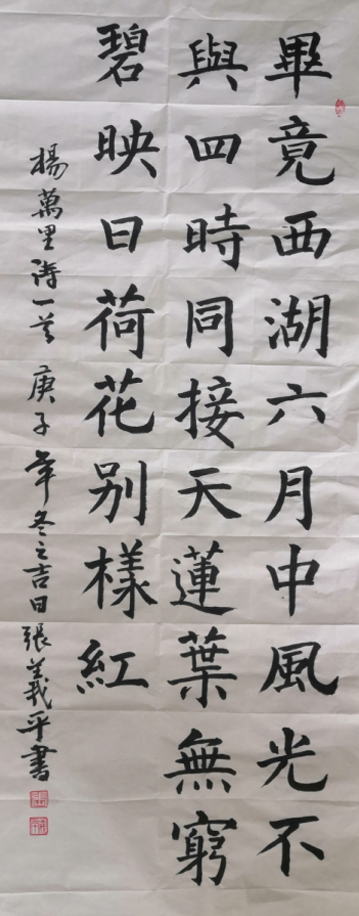 畢竟西湖六月中風光不
與四時同接天蓮葉無窮
碧映日荷花别樣紅
楊萬里詩一首 庚子年冬之吉日張義平書